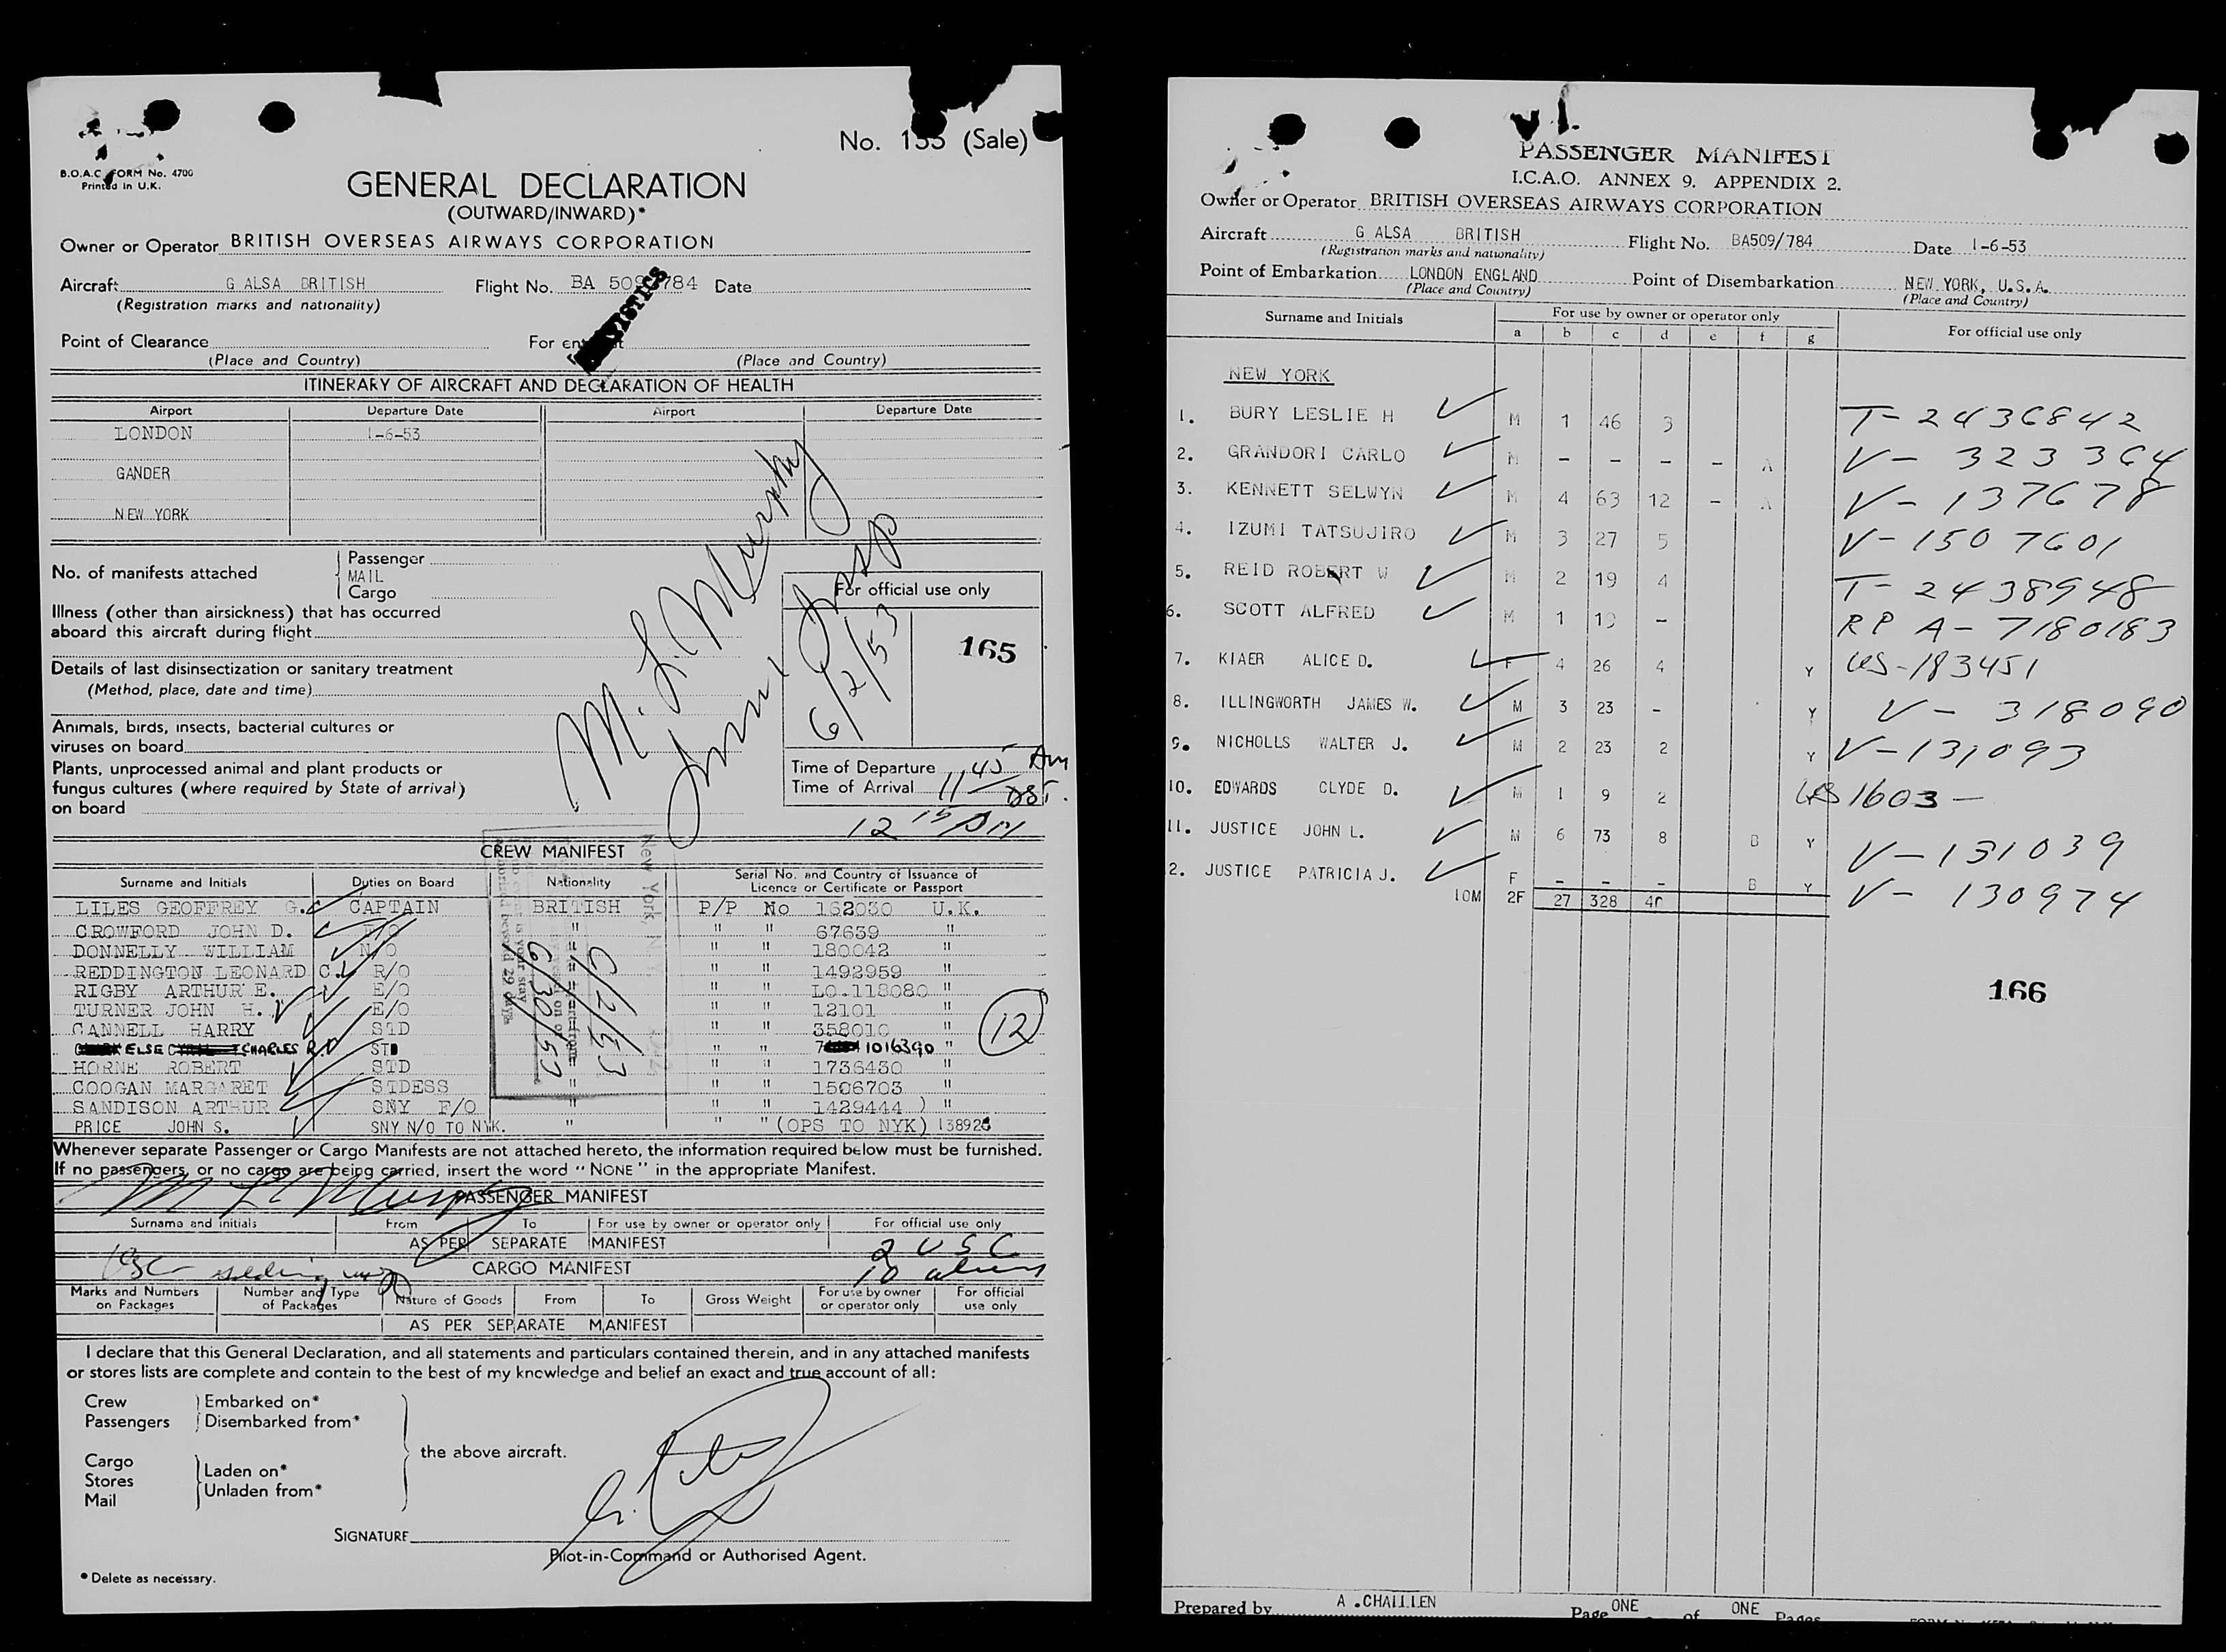 No. 133 (Sale)
B.O.A.C. FORM No. 4700
Printed in U.K.
GENERAL DECLARATION
(OUTWARD/INWARD)*
Owner or Operator BRITISH OVERSEAS AIRWAYS CORPORATION
Aircraft G ALSA BRITISH Flight No. BA 509/784 Date
(Registration marks and nationality)
Point of Clearance For
(Place and Country) (Place and Country)
ITINERARY OF AIRCRAFT AND DECLARATION OF HEALTH
Airport Departure Date Airport Departure Date
LONDON 1-6-53
GANDER
NEW YORK
No. of manifests attached
Passenger
MAIL
Cargo
M. L. Murphy
Immt Insp
6/2/53
For official use only
165
Illness (other than airsickness) that has occurred
aboard this aircraft during flight
Details of last disinsectization or sanitary treatment
(Method, place, date and time)
Animals, birds, insects, bacterial cultures or
viruses on board
Plants, unprocessed animal and plant products or
fungus cultures (where required by State of arrival)
on board
Time of Departure
Time of Arrival 11 45 Am DST.
12 15 PM
CREW MANIFEST
Surname and Initials Duties on Board Nationality Serial No. and Country of Issuance of
Licence or Certificate or Passport
LILES GEOFFREY G. CAPTAIN BRITISH P/P No 162030 U.K.
CROWFORD JOHN D. F/O " " " 67639 "
DONNELLY WILLIAM N/O " " 180042 "
REDDINGTON LEONARD C. R/O " " 1492959 "
RIGBY ARTHUR E. E/O " " LO.118080 "
TURNER JOHN H. E/O " " 12101 "
CANNELL HARRY STD " " 358010 "
ELSE CHARLES R. STD " " 1016390 "
HORNE ROBERT STD " " 1736430 "
COOGAN MARGARET STDESS " " " 1506703 "
SANDISON ARTHUR SNY F/O " " " 1429444 ) "
PRICE JOHN S. SNY N/O TO NYK. " " " (OPS TO NYK) 138926
12
New York, N.Y.
6/2/53
6/30/53
Whenever separate Passenger or Cargo Manifests are not attached hereto, the information required below must be furnished.
If no passengers, or no cargo are being carried, insert the word "NONE" in the appropriate Manifest.
M L Murphy
PASSENGER MANIFEST
Surname and initials From To For use by owner or operator only For official use only
AS PER SEPARATE MANIFEST
2 USC
10 aliens
CARGO MANIFEST
Marks and Numbers
on Packages
Number and Type
of Packages
Nature of Goods From To Gross Weight
For use by owner
or operator only
For official
use only
AS PER SEPARATE MANIFEST
I declare that this General Declaration, and all statements and particulars contained therein, and in any attached manifests
or stores lists are complete and contain to the best of my knowledge and belief an exact and true account of all:
Crew Embarked on*
Passengers Disembarked from*
the above aircraft.
Cargo
Stores
Mail
Laden on*
Unladen from*
SIGNATURE
Pilot-in-Command or Authorised Agent.
* Delete as necessary.
PASSENGER MANIFEST
I.C.A.O. ANNEX 9. APPENDIX 2.
Owner or Operator BRITISH OVERSEAS AIRWAYS CORPORATION
Aircraft G ALSA BRITISH Flight No. BA509/784 Date 1-6-53
(Registration marks and nationality)
Point of Embarkation LONDON ENGLAND Point of Disembarkation NEW YORK, U.S.A.
(Place and Country) (Place and Country)
Surname and Initials For use by owner or operator only For official use only
a b c d e f g
NEW YORK
1. BURY LESLIE H M 1 46 3 T-2436842
2. GRANDORI CARLO M - - - - A V-323364
3. KENNETT SELWYN M 4 63 12 - A V-137678
4. IZUMI TATSUJIRO M 3 27 5 V-1507601
5. REID ROBERT W M 2 19 4 T-2438948
6. SCOTT ALFRED M 1 19 - RP A-7180183
7. KIAER ALICE D. F 4 26 4 Y US-183451
8. ILLINGWORTH JAMES W. M 3 23 - Y V-318090
9. NICHOLLS WALTER J. M 2 23 2 Y V-131093
10. EDWARDS CLYDE D. M 1 9 2 US 1603-
11. JUSTICE JOHN L. M 6 73 8 B Y V-131039
2. JUSTICE PATRICIA J. F - - - B Y V-130974
10M 2F 27 328 40
166
Prepared by A. CHAILLEN Page ONE of ONE Pages